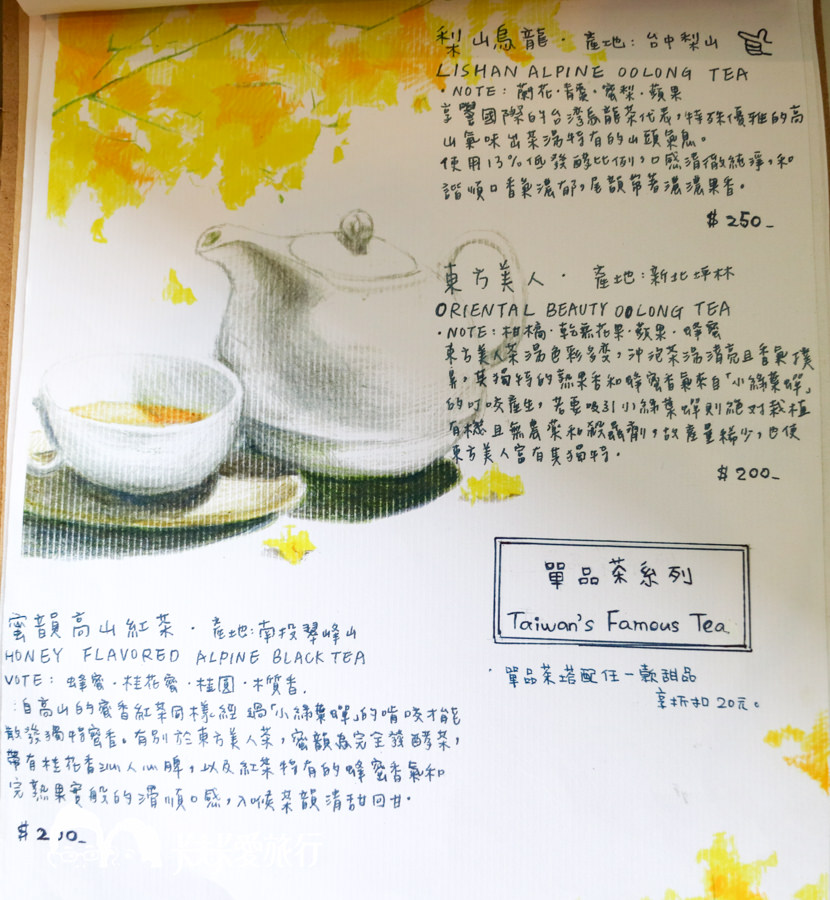 梨山烏龍 · 產地：台中梨山
LISHAN ALPINE OOLONG TEA
· NOTE：蘭花·青棗·蜜梨·蘋果
享譽國際的台灣烏龍茶代表，特殊優雅的高
山氣味出茶湯特有的山頭氣息。
使用13%低發酵比例，口感清徹純淨，和
諧順口香氣濃郁，尾韻帶著濃濃果香。
$ 250_
東方美人 · 產地：新北坪林
ORIENTAL BEAUTY OOLONG TEA
· NOTE：柑橘·乾無花果·蘋果·蜂蜜
東方美人茶湯色彩多變，沖泡茶湯清亮且香氣撲
鼻，其獨特的熟果香和蜂蜜香氣來自「小綠葉蟬」
的叮咬產生，若要吸引小綠葉蟬則絕對栽植
有機且無農藥和殺蟲劑，故產量稀少，也使
東方美人富有其獨特.
$ 200_
單品茶系列
Taiwan's Famous Tea
· 單品茶搭配任一款甜品
享折扣20元。
蜜韻高山紅茶 · 產地：南投翠峰山
HONEY FLAVORED ALPINE BLACK TEA
VOTE：蜂蜜·桂花蜜·桂圓·木質香.
自高山的蜜香紅茶同樣經過「小綠葉蟬」的啃咬才能
散發獨特蜜香。有別於東方美人茶，蜜韻為完全發酵茶，
帶有桂花香沁人心脾，以及紅茶特有的蜂蜜香氣和
完熟果實般的滑順口感，入喉茶韻清甜回甘.
$ 210_
愛旅行